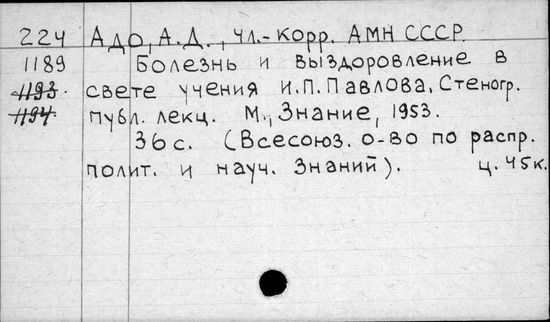 224 Адо, А.Д., чл.-корр. АМН СССР.
1189 Болезнь и выздоровление в
1193. свете учения И.П.Павлова. Стеногр.
1194. публ. лекц. М., Знание, 1953.
36 с. (Всесоюз. о-во по распр.
полит. и науч. Знаний). ц. 45к.